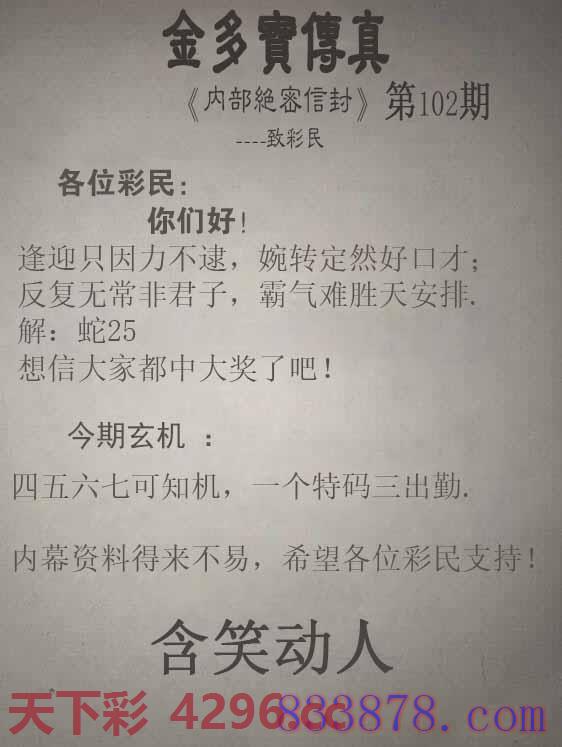 金多寳傳真
《内部絶密信封》第102期
----致彩民
各位彩民:
你们好!
逢迎只因力不逮，婉转定然好口才;
反复无常非君子，霸气难胜天安排.
解：蛇25
想信大家都中大奖了吧!
今期玄机 ：
四五六七可知机，一个特码三出勤.
内幕资料得来不易，希望各位彩民支持!
含笑动人
天下彩 4296.cc
883878.com